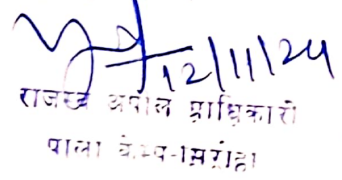 12/11/24
राजस्व अपील प्राधिकारी
पाली कैम्प-सिरोही